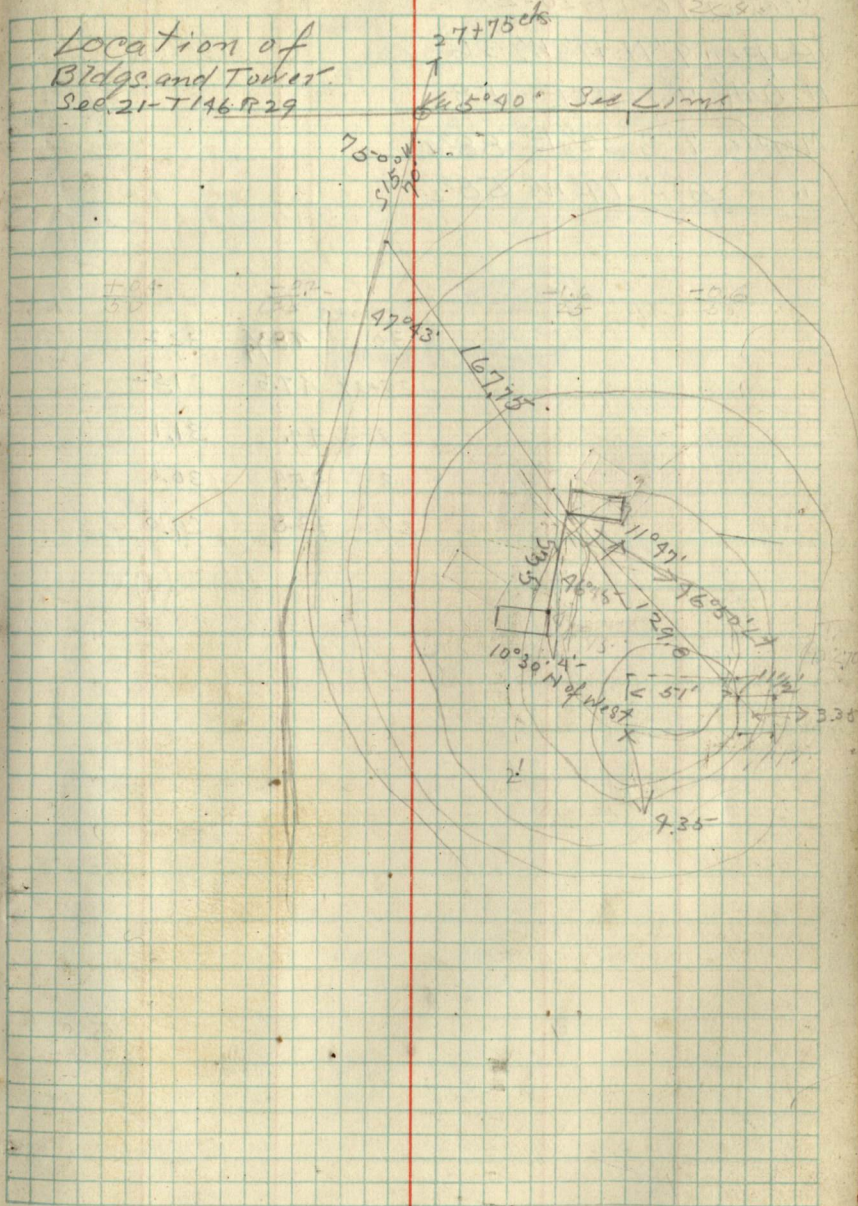 Location of
Bldgs. and Tower.
Sec. 21-T146 R29
27+75 chs
5°40' Sec Line
75-00
S15°W
70
47°43'
167.75
11°47'
46°15'
16°50' Lt
129.8
10°30' N of West
4'
51'
11 1/2'
3.35
2'
4.35